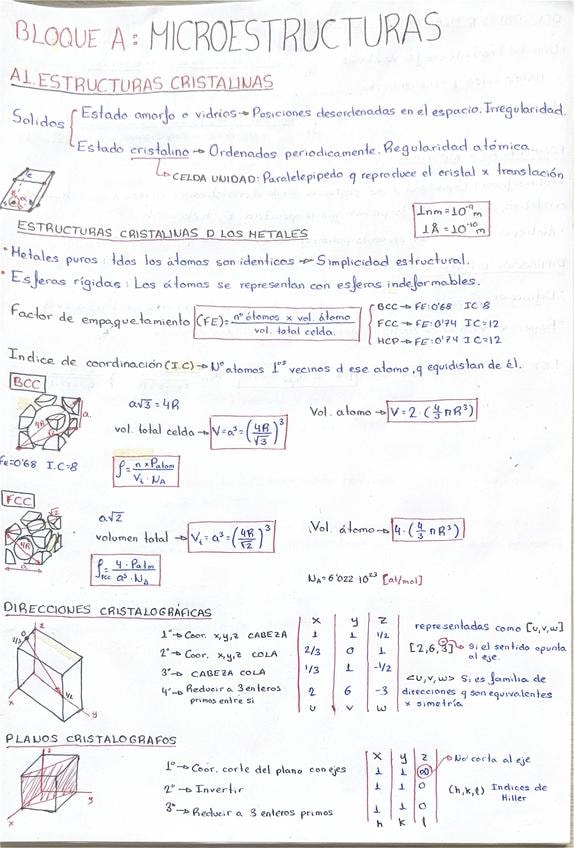 BLOQUE A: MICROESTRUCTURAS
A1. ESTRUCTURAS CRISTALINAS
Solidos { Estado amorfo o vidrios → Posiciones desordenadas en el espacio. Irregularidad.
Estado cristalino → Ordenados periodicamente. Regularidad atómica.
↳ CELDA UNIDAD: Paralelepipedo q reproduce el cristal x translación
1nm = 10⁻⁹ m
1Å = 10⁻¹⁰ m
ESTRUCTURAS CRISTALINAS D LOS METALES
• Metales puros: tdos los átomos son identicos → Simplicidad estructural.
• Esferas rígidas: Los átomos se representan con esferas indeformables.
Factor de empaquetamiento (FE) = nº átomos x vol. átomo / vol. total celda.
BCC → FE: 0'68 IC: 8
FCC → FE: 0'74 IC = 12
HCP → FE: 0'74 IC = 12
Indice de coordinación (I.C) → Nº atomos 1ºˢ vecinos d ese atomo, q equidistan de él.
BCC
a√3 = 4R
vol. total celda → V = a³ = (4R/√3)³
Vol. atomo → V = 2 · (4/3 π R³)
a.
4R
Fe = 0'68 I.C = 8
ρ = n x Patom / Vt · NA
FCC
a√2
volumen total → Vt = a³ = (4R/√2)³
Vol. átomo → 4 · (4/3 π R³)
4R
a
ρfcc = 4 · Patm / a³ · NA
NA = 6'022 · 10²³ [at/mol]
DIRECCIONES CRISTALOGRÁFICAS
x y z
1º → Coor. x, y, z CABEZA 1 1 1/2
2º → Coor. x, y, z COLA 2/3 0 1
3º → CABEZA COLA 1/3 1 -1/2
4º → Reducir a 3 enteros primos entre si 2 6 -3
u v w
representadas como [u, v, w]
[2, 6, 3̄] → Si el sentido apunta al eje.
<u, v, w> Si es familia de
direcciones q son equivalentes
x simetría
z
2/3
1/2
y
x
PLANOS CRISTALOGRAFOS
x y z
1º → Coor. corte del plano con ejes 1 1 ∞
2º → Invertir 1 1 0
3º → Reducir a 3 enteros primos 1 1 0
h k l
No corta al eje
(h, k, l) Indices de
Miller
z
y
x